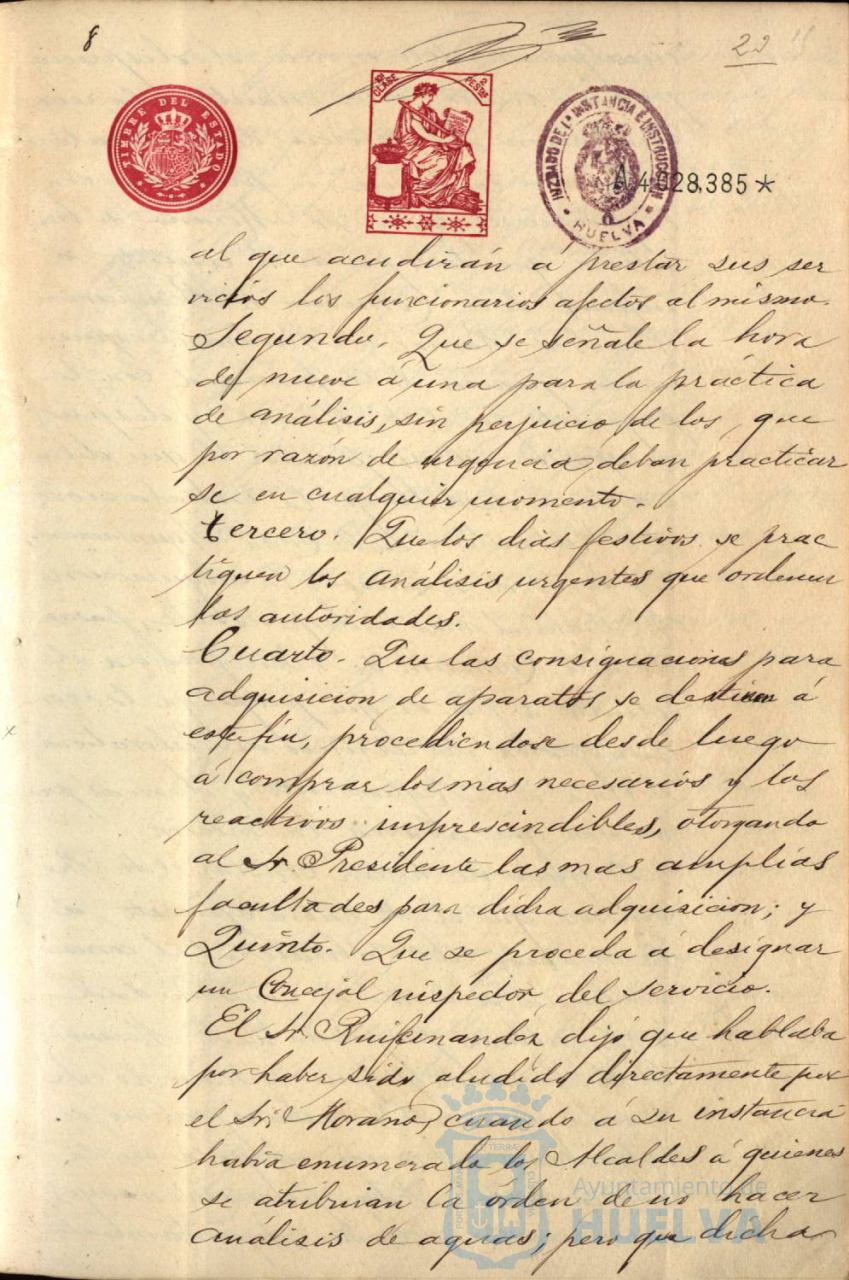 8
22
TIMBRE DEL ESTADO
10ª CLASE
2 PESETAS
JUZGADO DE 1ª INSTANCIA E INSTRUCCION
HUELVA
A4028,385*
al que acudirán á prestar sus ser
vicios los funcionarios afectos al mismo.
Segundo. Que se señale la hora
de nueve á una para la práctica
de análisis, sin perjuicio de los, que
por razón de urgencia, deban practicar
se en cualquier momento.
tercero. Que los dias festivos se prac
tiquen los análisis urgentes que ordenen
las autoridades.
Cuarto. Que las consignaciones para
adquisicion de aparatos se destinen á
este fin, procediendose desde luego
á comprar los mas necesarios y los
reactivos imprescindibles, otorgando
al Sr. Presidente las mas amplias
facultades para dicha adquisicion; y
Quinto. Que se proceda á designar
un Concejal inspector del servicio.
El Sr. Ruifernandez dijó que hablaba
por haber sido aludido directamente por
el Sr. Morano, cuando á su instancia
habia enumerado los Alcaldes á quienes
se atribuian la órden de no hacer
análisis de aguas; pero que dicha
Ayuntamiento de
HUELVA